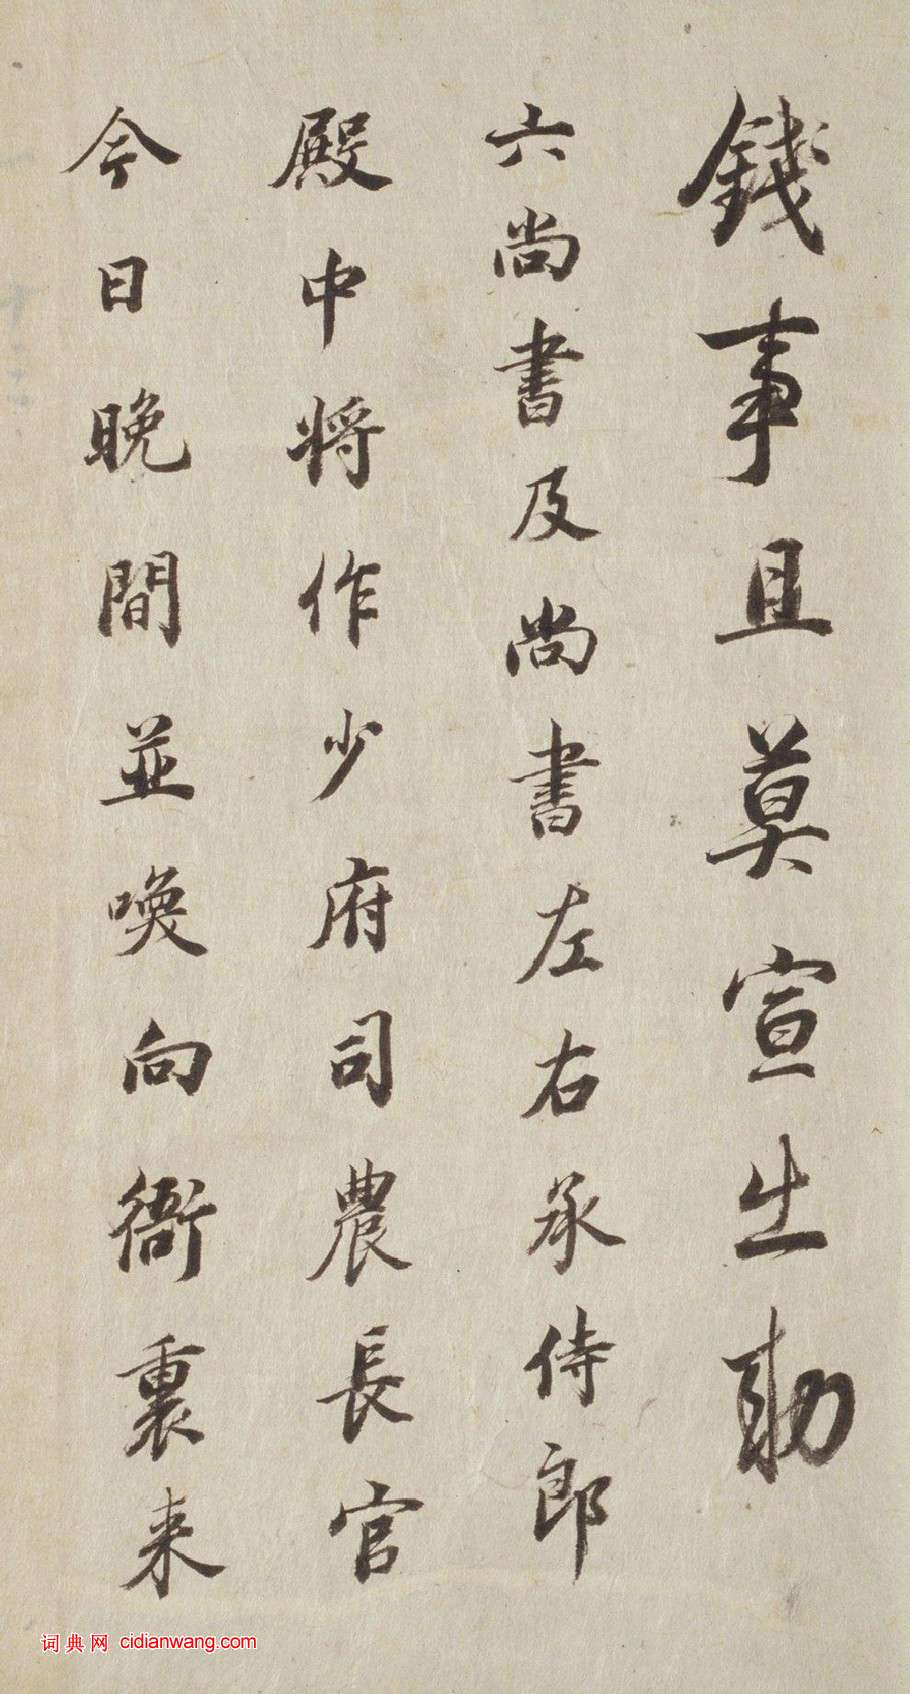 錢事且莫宣出勅
六尚書及尚書左右承侍郎
殿中将作少府司農長官
今日晚間並喚向衙裏来
词典网 cidianwang.com